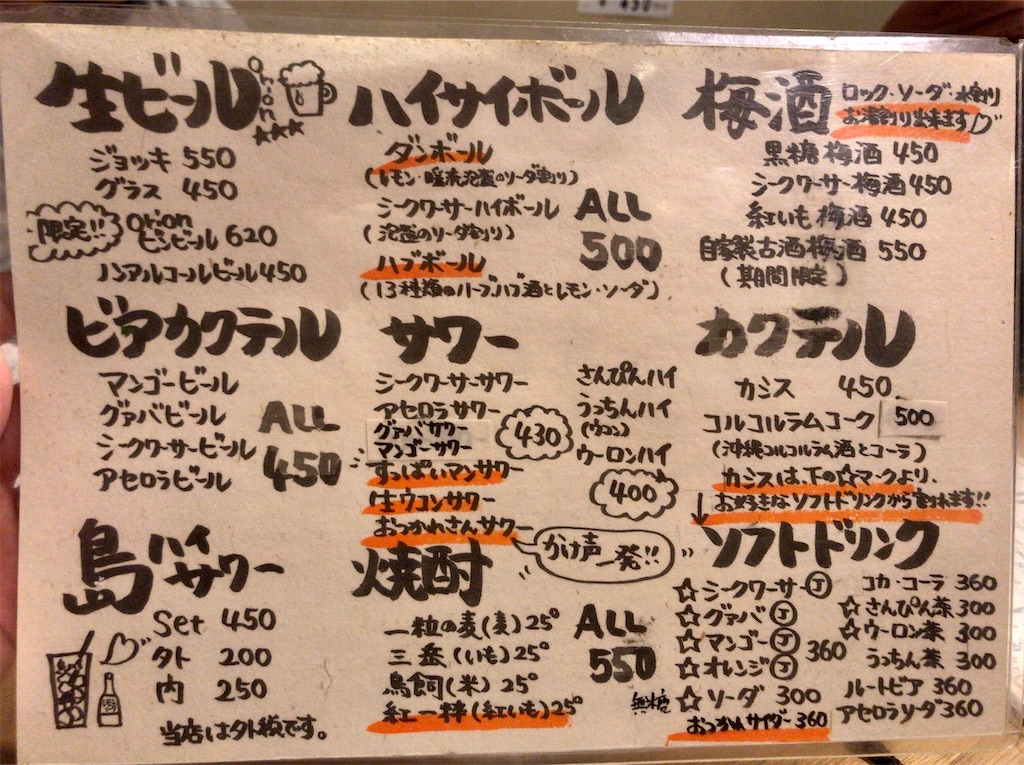 生ビール
Orion
ジョッキ 550
グラス 450
限定!!
Orion
ビンビール 620
ノンアルコールビール 450
ハイサイボール
ダンボール
(レモン・暖流泡盛のソーダ割り)
シークワーサーハイボール
(泡盛のソーダ割り)
ハブボール
(13種類のハーブ、ハブ酒とレモン・ソーダ)
ALL
500
梅酒
ロック・ソーダ・水割り
お湯割り出来ます
黒糖梅酒 450
シークワーサー梅酒 450
紅いも梅酒 450
自家製古酒梅酒 550
(期間限定)
ビアカクテル
マンゴービール
グァバビール
シークワーサービール
アセロラビール
ALL
450
サワー
シークワーサーサワー
アセロラサワー
グァバサワー
マンゴーサワー
すっぱいマンサワー
生ウコンサワー
おつかれさんサワー
430
さんぴんハイ
うっちんハイ
(ウコン)
ウーロンハイ
400
かけ声
一発!!
カクテル
カシス 450
コルコルラムコーク 500
(沖縄コルコルラム酒とコーラ)
カシスは、下の☆マークより、
お好きなソフトドリンクから割れます!!
島ハイサワー
Set 450
外 200
内 250
当店は外税です。
焼酎
一粒の麦(麦)25°
三岳(いも)25°
鳥飼(米)25°
紅一粋(紅いも)25°
ALL
550
ソフトドリンク
☆シークワーサーJ
☆グァバJ
☆マンゴーJ
☆オレンジJ
360
無糖
☆ソーダ 300
おつかれサイダー 360
コカ・コーラ 360
☆さんぴん茶 300
☆ウーロン茶 300
うっちん茶 300
ルートビア 360
アセロラソーダ 360